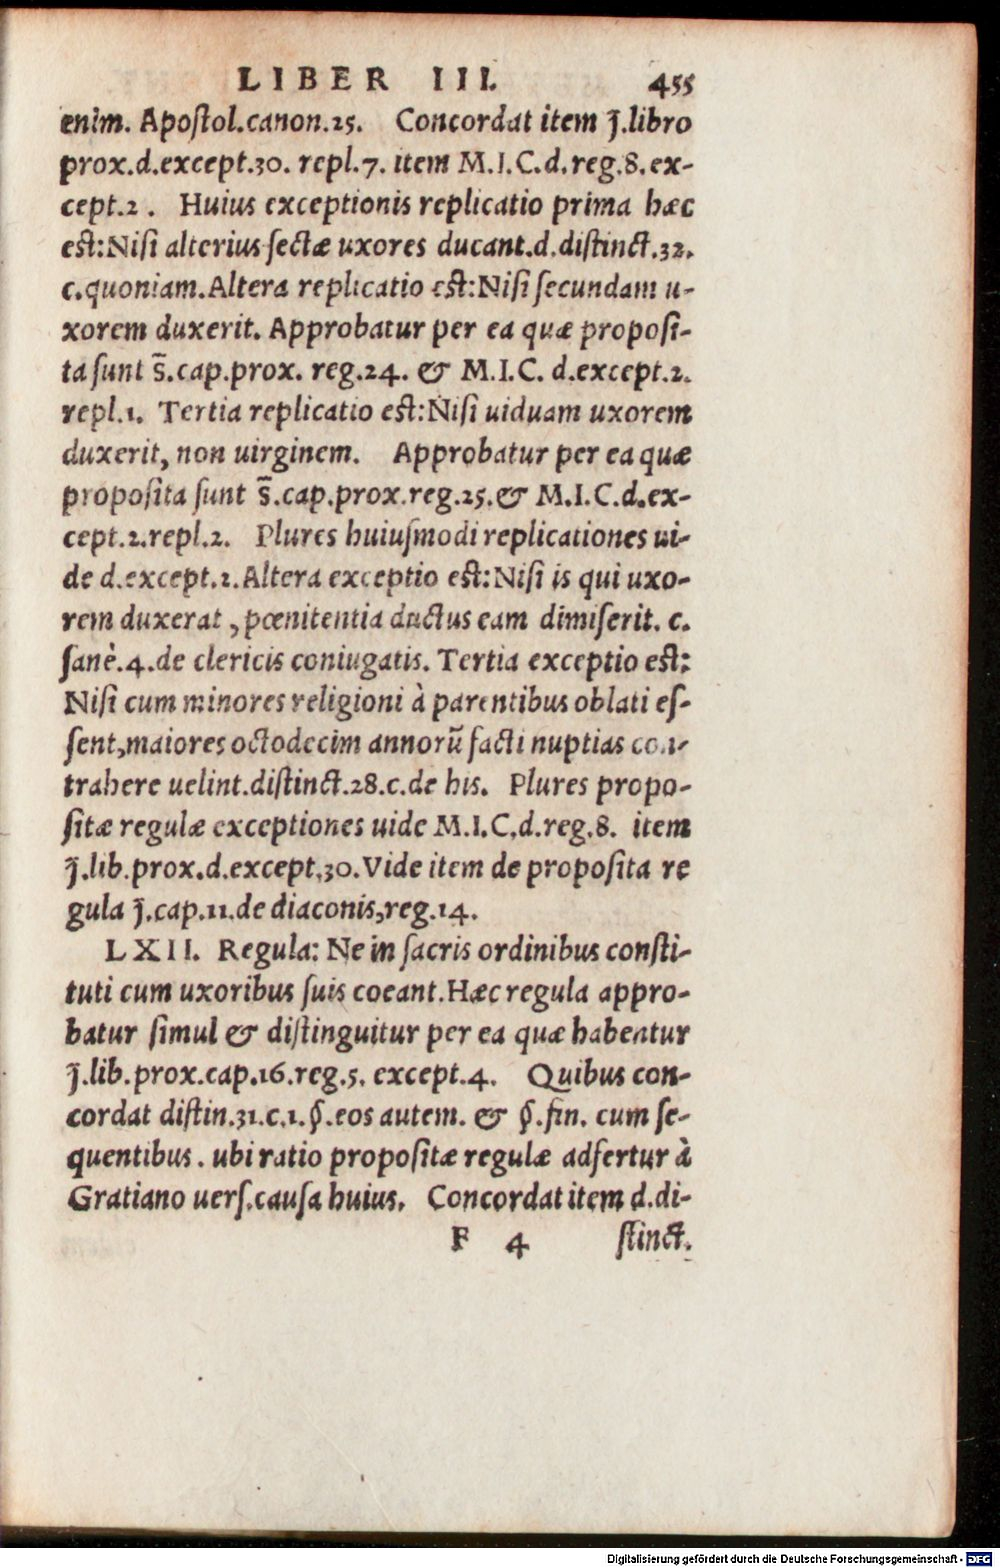 LIBER III. 455
enim. Apostol.canon.25. Concordat item J̃.libro
prox.d.except.30. repl.7. item M.I.C.d.reg.8.ex-
cept.2. Huius exceptionis replicatio prima hæc
est:Nisi alterius sectæ uxores ducant.d.distinct.32.
c.quoniam.Altera replicatio est:Nisi secundam u-
xorem duxerit. Approbatur per ea quæ proposi-
ta sunt s̃.cap.prox. reg.24. & M.I.C. d.except.2.
repl.1. Tertia replicatio est:Nisi uiduam uxorem
duxerit, non uirginem. Approbatur per ea quæ
proposita sunt s̃.cap.prox.reg.25.& M.I.C.d.ex-
cept.2.repl.2. Plures huiusmodi replicationes ui-
de d.except.2.Altera exceptio est:Nisi is qui uxo-
rem duxerat, pœnitentia ductus eam dimiserit. c.
sanè.4.de clericis coniugatis. Tertia exceptio est:
Nisi cum minores religioni à parentibus oblati es-
sent,maiores octodecim annorũ facti nuptias con-
trahere uelint.distinct.28.c.de his. Plures propo-
sitæ regulæ exceptiones uide M.I.C.d.reg.8. item
J̃.lib.prox.d.except.30.Vide item de proposita re
gula J̃.cap.11.de diaconis,reg.14.
LXII. Regula: Ne in sacris ordinibus consti-
tuti cum uxoribus suis coeant.Hæc regula appro-
batur simul & distinguitur per ea quæ habentur
J̃.lib.prox.cap.16.reg.5. except.4. Quibus con-
cordat distin.31.c.1.§.eos autem. & §.fin. cum se-
quentibus. ubi ratio propositæ regulæ adfertur à
Gratiano uers.causa huius. Concordat item d.di-
F 4 stinct.
Digitalisierung gefördert durch die Deutsche Forschungsgemeinschaft - DFG